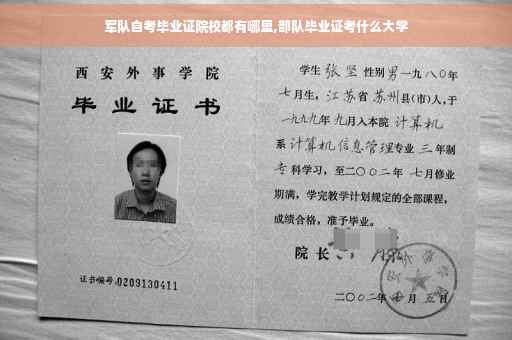 军队自考毕业证院校都有哪里,部队毕业证考什么大学
西安外事学院
毕业证书
证书编号:0209130411
学生 张坚 性别 男 一九八〇年
七月生，江苏省 苏州县(市)人，于
一九九九年 九月入本院 计算机
系 计算机信息管理专业 三 年制
专 科学习，至二〇〇二年 七月修业
期满，学完教学计划规定的全部课程，
成绩合格，准予毕业。
院 长
二〇〇二年 月 五 日